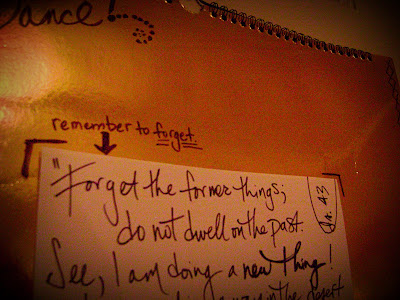 Dance!
remember to forget.
"Forget the former things;
do not dwell on the past.
See, I am doing a new thing!
in the desert
Isa. 43